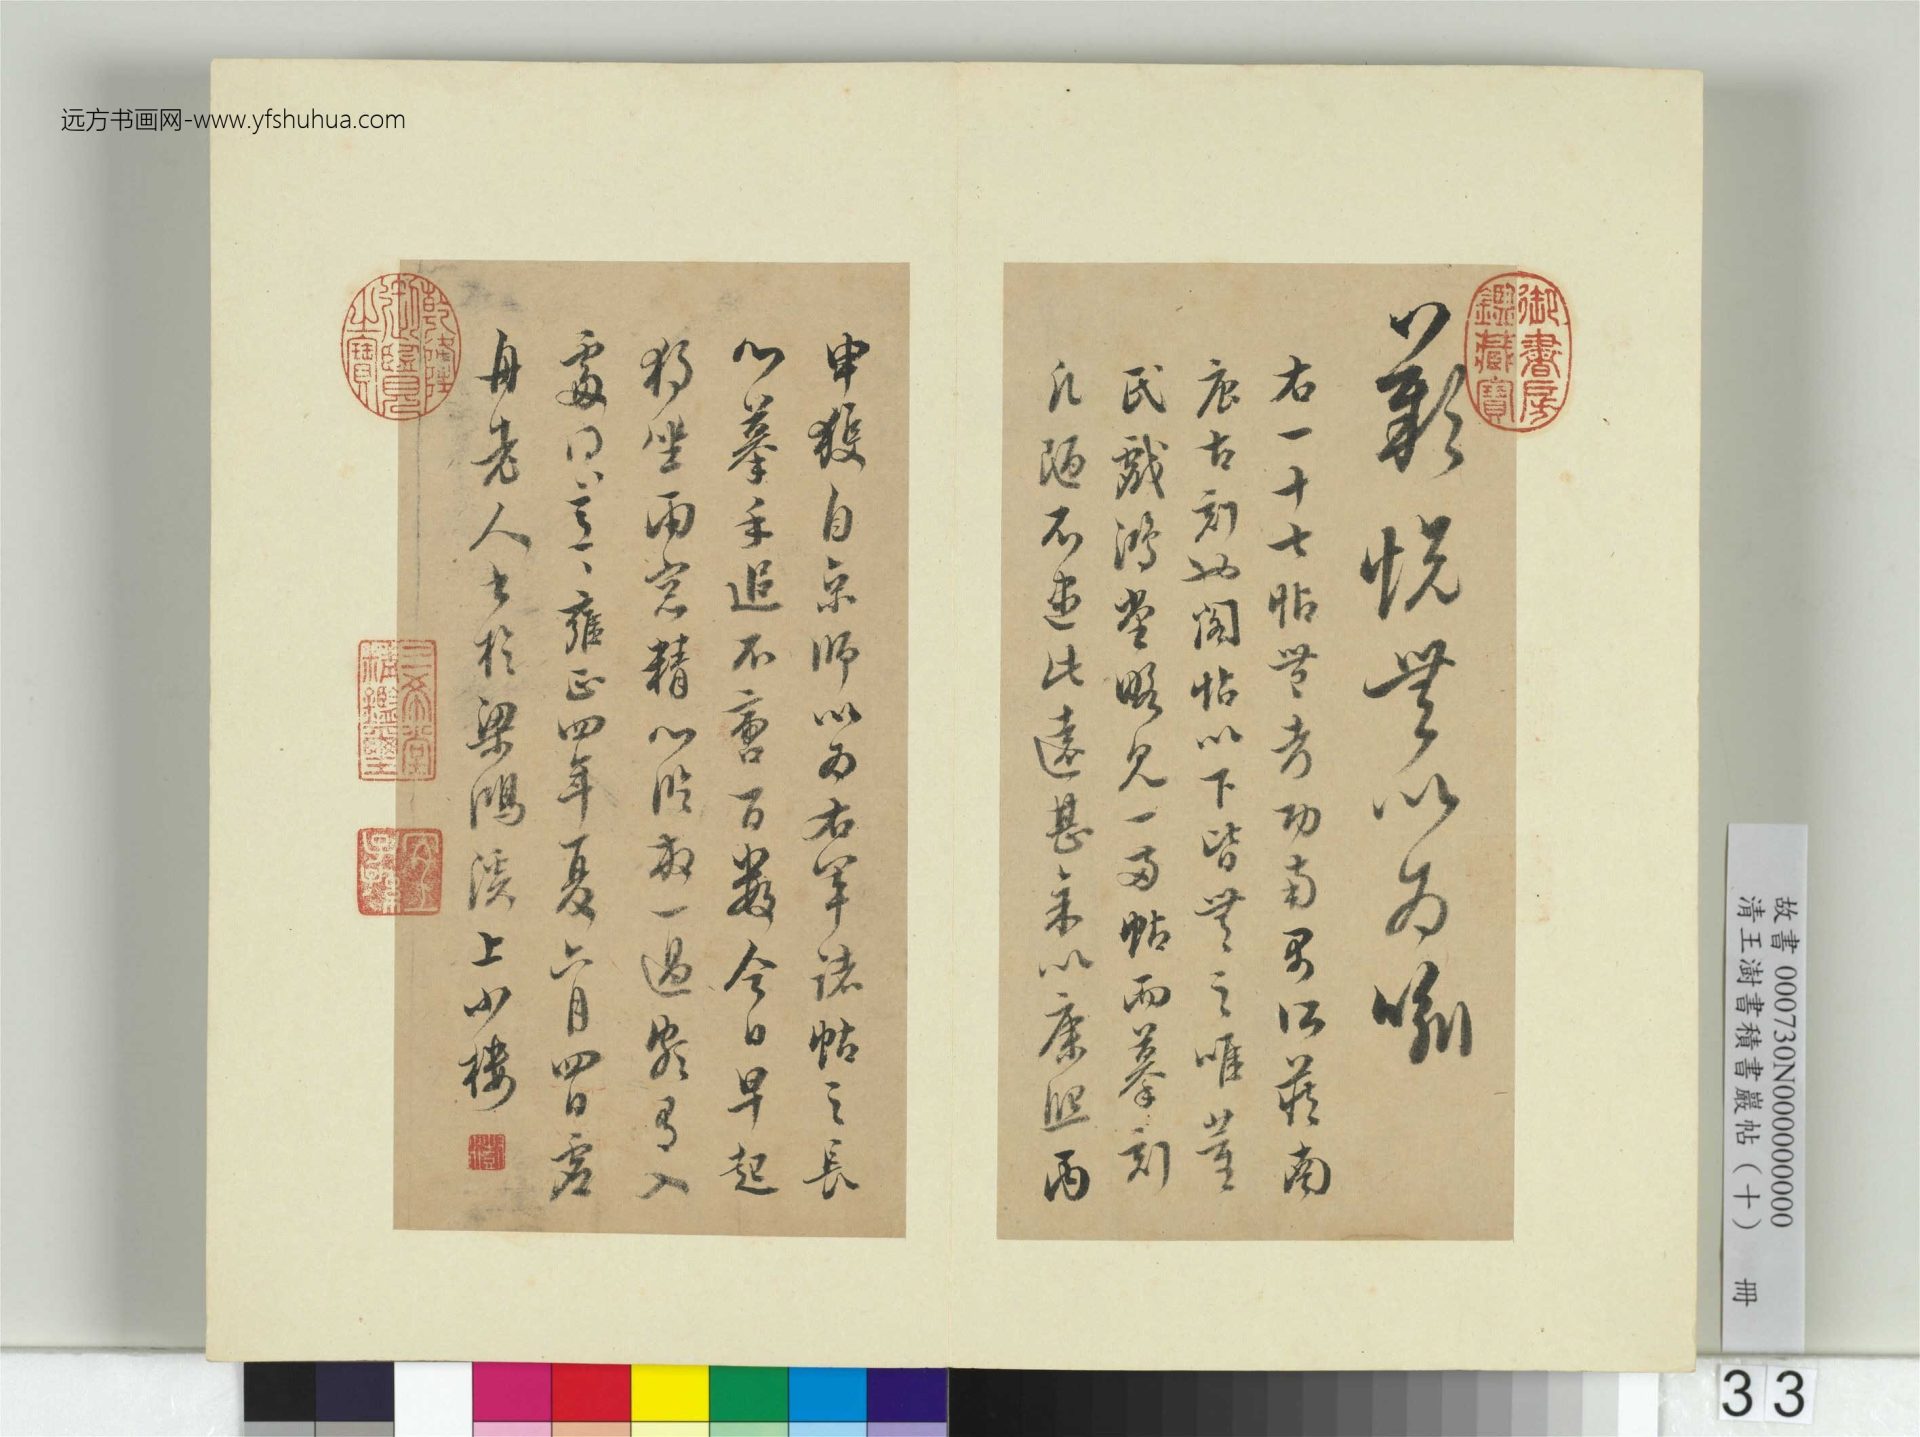 远方书画网-www.yfshuhua.com
御書房鑑藏寶
以難悦無以為喻
右一十七帖無考功南
辰古刻如閣帖以下皆無之唯董
氏戲鴻堂略見一兩帖而摹刻
凡陋不逮此遠甚余以康熙丙
申獲自京師以為右軍諸帖之長
心摹手追不啻百數今日早起
獨坐雨窓精心臨幼一過嵗月入
處同言雍正四年夏六月四日虚
舟老人書於梁鴻溪上小樓
乾隆御覽之寶
三希堂精鑑璽
宜子孫
故書 000730N000000000
清王澍書積書巖帖（十） 冊
33